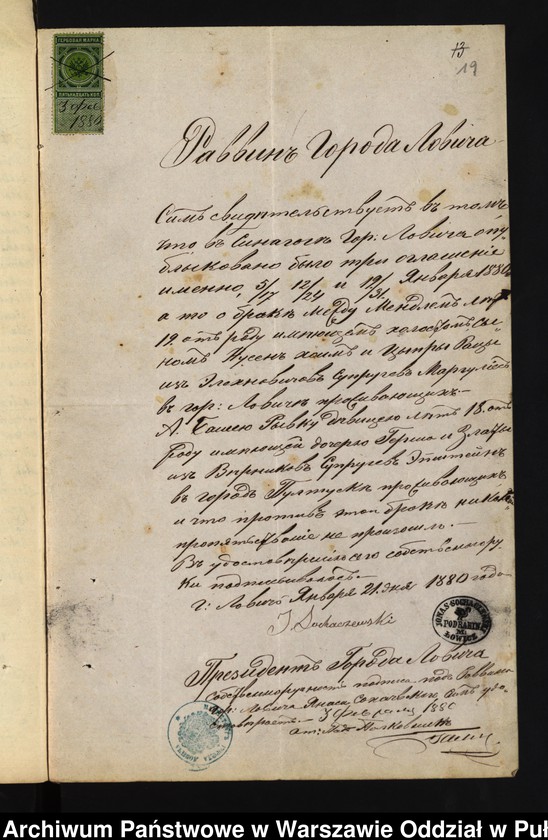 13
19
ГЕРБОВАЯ МАРКА
ПЯТНАДЦАТЬ КОП
3 фев
1880
Раввинъ Города Ловича
Симъ свидѣтельствуетъ въ томъ
что въ Синагогѣ гор: Ловича опу
бликовано было три оглашенія
именно 5/17 12/24 и 19/31 Января 1880
а то о бракѣ между Менделемъ лѣтъ
19 отъ роду имѣющемъ холостымъ сы
номъ Нусенъ Хаимъ и Цытры
изъ Супруговъ Маргулѣсъ
въ гор: Ловичѣ проживающихъ
А Рывку дѣвицею лѣтъ 18 отъ
роду имѣющей дочерью Герша и Златы
изъ Супруговъ Эпштейнъ
въ городѣ Пултускѣ проживающихъ
и что противъ этой бракѣ никакъ
препятствованіе не произошл.
Въ удостовѣреніе сего собственнору
ки подписывалось
г: Ловичъ Января 21 дня 1880 года
J Sochaczewski
JONAS SOCHACZEWSKI
PODRABIN
ŁOWICZ
Президентъ Города Ловича
собственноручность подписа подъ Раввина
гор: Ловича Янаса Сохачевски, симъ удо
стовѣряетъ 3 Февраля 1880
Archiwum Państwowe w Warszawie Oddział w Puł